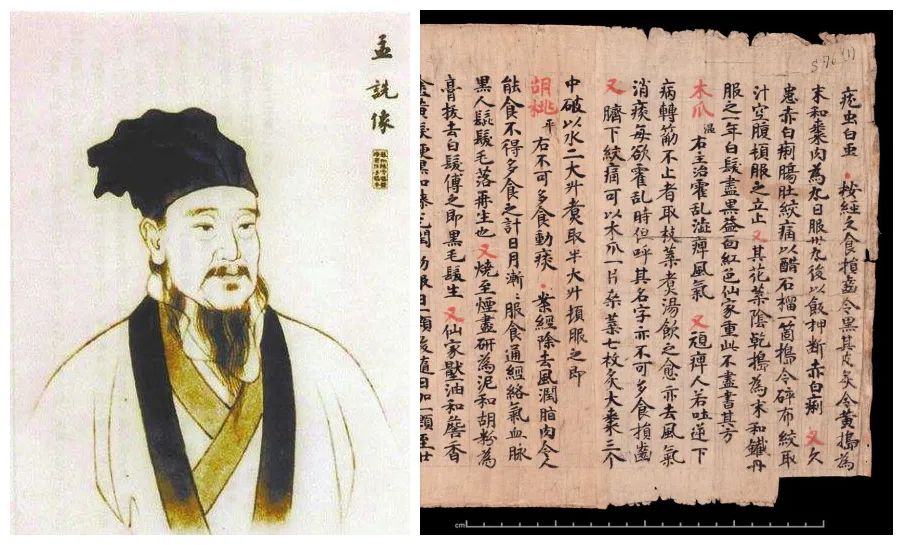 孟詵像
S.76 (1)
疣虫白虫 ·按經久食損齒令黑其皮炙令黃擣為
末和棗肉為丸日服卅丸後以飯柙断赤白痢 又久
患赤白痢腸肚絞痛以醋石榴一箇擣令碎布絞取
汁空腹頓服之立止 又其花葉陰乾擣為末和鐵丹
服之一年白髮盡黑益面紅色仙家重此不盡書其方
木瓜 溫 右主治霍乱澁痺風氣 又 頑痺人若吐逆下
病轉筋不止者取枝葉煮湯飲之愈亦去風氣
消痰每欲霍乱時但呼其名字亦不可多食損齒
又 臍下絞痛可以木瓜一片桒葉七枚炙大棗三个
中破以水二大升煮取半大升頓服之即
胡桃 平 右不可多食動痰 ·案經除去風潤脂肉令人
能食不得多食之計日月漸〻服食通經絡氣血脉
黑人髭髮毛落再生也 又燒至煙盡研為泥和胡粉為
膏拔去白髮傅之即黑毛髮生 又仙家壓油和詹香
cm